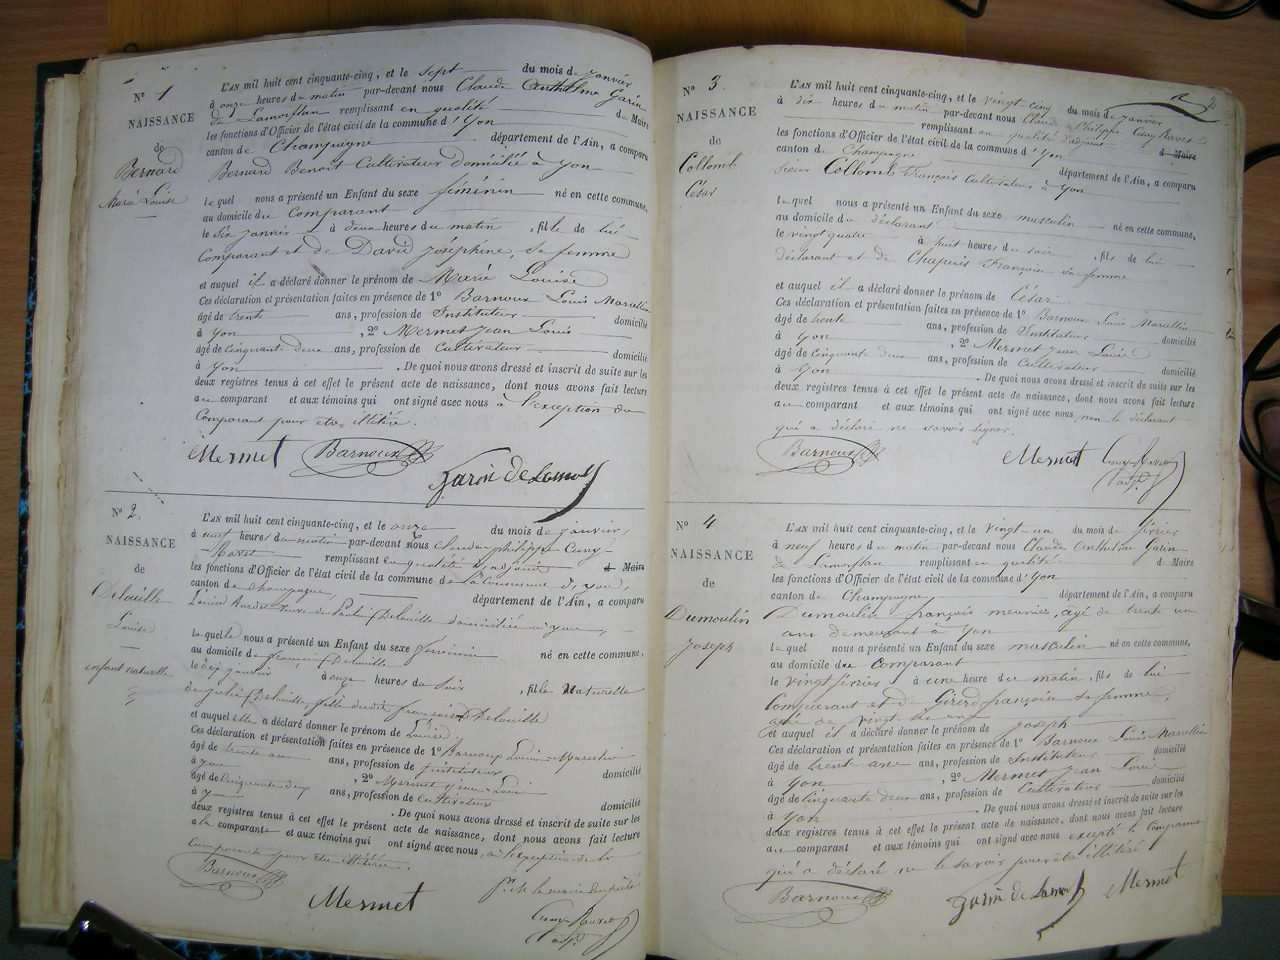 N° 1
NAISSANCE
de
Bernard
Marie Louise
L'AN mil huit cent cinquante-cinq, et le sept du mois de janvier
à onze heures du matin par-devant nous Claude Anthelme Garin
de Lamorflan remplissant en qualité de Maire
les fonctions d'Officier de l'état civil de la commune d'Yon
canton de Champagne département de l'Ain, a comparu
Bernard Benoit Cultivateur domicilié à Yon
lequel nous a présenté un Enfant du sexe féminin né en cette commune,
au domicile du Comparant
le six janvier à deux heures du matin, fille de lui
Comparant et de David Joséphine, sa femme
et auquel il a déclaré donner le prénom de Marie Louise
Ces déclaration et présentation faites en présence de 1° Barnoux Louis Marcellin
âgé de trente ans, profession de Instituteur domicilié
à Yon, 2° Mermet Jean Louis
âgé de cinquante deux ans, profession de Cultivateur domicilié
à Yon. De quoi nous avons dressé et inscrit de suite sur les
deux registres tenus à cet effet le présent acte de naissance, dont nous avons fait lecture
au comparant et aux témoins qui ont signé avec nous à l'exception du
Comparant pour être illitéré.
Mermet Barnoux
Garin de Lamorf
N° 2.
NAISSANCE
de
Delaville
Louise
enfant naturelle
L'AN mil huit cent cinquante-cinq, et le onze du mois de janvier,
à neuf heures du matin par-devant nous Claude philippe Cuny-
Ravet remplissant en qualité d'adjoint d Maire
les fonctions d'Officier de l'état civil de la commune de la Commune d'yon,
canton de champagne, département de l'Ain, a comparu
domiciliée à yon,
laquelle nous a présenté un Enfant du sexe féminin né en cette commune,
au domicile de françois Delaville
le dix janvier à onze heures du soir, fille Naturelle
de julie Delaville, fille dudit françois Delaville
et auquel elle a déclaré donner le prénom de Louise
Ces déclaration et présentation faites en présence de 1° Barnoux Louis Marcellin
âgé de trente ans ans, profession de instituteur domicilié
à yon, 2° Mermet Jean Louis
âgé de cinquante deux ans, profession de Cultivateur domicilié
à Y. De quoi nous avons dressé et inscrit de suite sur les
deux registres tenus à cet effet le présent acte de naissance, dont nous avons fait lecture
a la comparante et aux témoins qui ont signé avec nous, à l'exception de la
Comparante pour être illitérée.
Barnoux
Mermet
Cuny Ravet
adj.
N° 3.
NAISSANCE
de
Collomb
César
L'AN mil huit cent cinquante-cinq, et le vingt cinq du mois de janvier
à dix heures du matin par-devant nous Claude Philippe Cuny Ravet
remplissant en qualité d'adjoint d Maire
les fonctions d'Officier de l'état civil de la commune d'Yon
canton de Champagne département de l'Ain, a comparu
sieur Collomb François Cultivateur à Yon
lequel nous a présenté un Enfant du sexe masculin né en cette commune,
au domicile du déclarant
le vingt quatre à huit heures du soir, fils de lui
déclarant et de Chapuis Françoise sa femme
et auquel il a déclaré donner le prénom de César
Ces déclaration et présentation faites en présence de 1° Barnoux Louis Marcellin
âgé de trente ans, profession de Instituteur domicilié
à Yon, 2° Mermet Jean Louis
âgé de cinquante deux ans, profession de Cultivateur domicilié
à Yon. De quoi nous avons dressé et inscrit de suite sur les
deux registres tenus à cet effet le présent acte de naissance, dont nous avons fait lecture
au comparant et aux témoins qui ont signé avec nous, non le déclarant
qui a déclaré ne savoir signer.
Barnoux Mermet Cuny Ravet
adj.
N° 4
NAISSANCE
de
Dumoulin
Joseph
L'AN mil huit cent cinquante-cinq, et le vingt un du mois de février
à neuf heures du matin par-devant nous Claude Anthelme Garin
de Lamorflan remplissant en qualité d Maire
les fonctions d'Officier de l'état civil de la commune d'Yon
canton de Champagne, département de l'Ain, a comparu
Dumoulin françois meunier, agé de trente un
ans demeurant à Yon
lequel nous a présenté un Enfant du sexe masculin né en cette commune,
au domicile du Comparant
le vingt février à une heure du matin, fils de lui
Comparant et de Girerd françoise sa femme,
agée de vingt
et auquel il a déclaré donner le prénom de joseph
Ces déclaration et présentation faites en présence de 1° Barnoux Louis Marcellin
âgé de trent ans ans, profession de Instituteur domicilié
à Yon, 2° Mermet Jean Louis
âgé de cinquante deux ans, profession de Cultivateur domicilié
à Yon. De quoi nous avons dressé et inscrit de suite sur les
deux registres tenus à cet effet le présent acte de naissance, dont nous avons fait lecture
au comparant et aux témoins qui ont signé avec nous excepté le Comparant
qui a déclaré ne le savoir pour être illitéré
Barnoux Garin de Lamorf Mermet